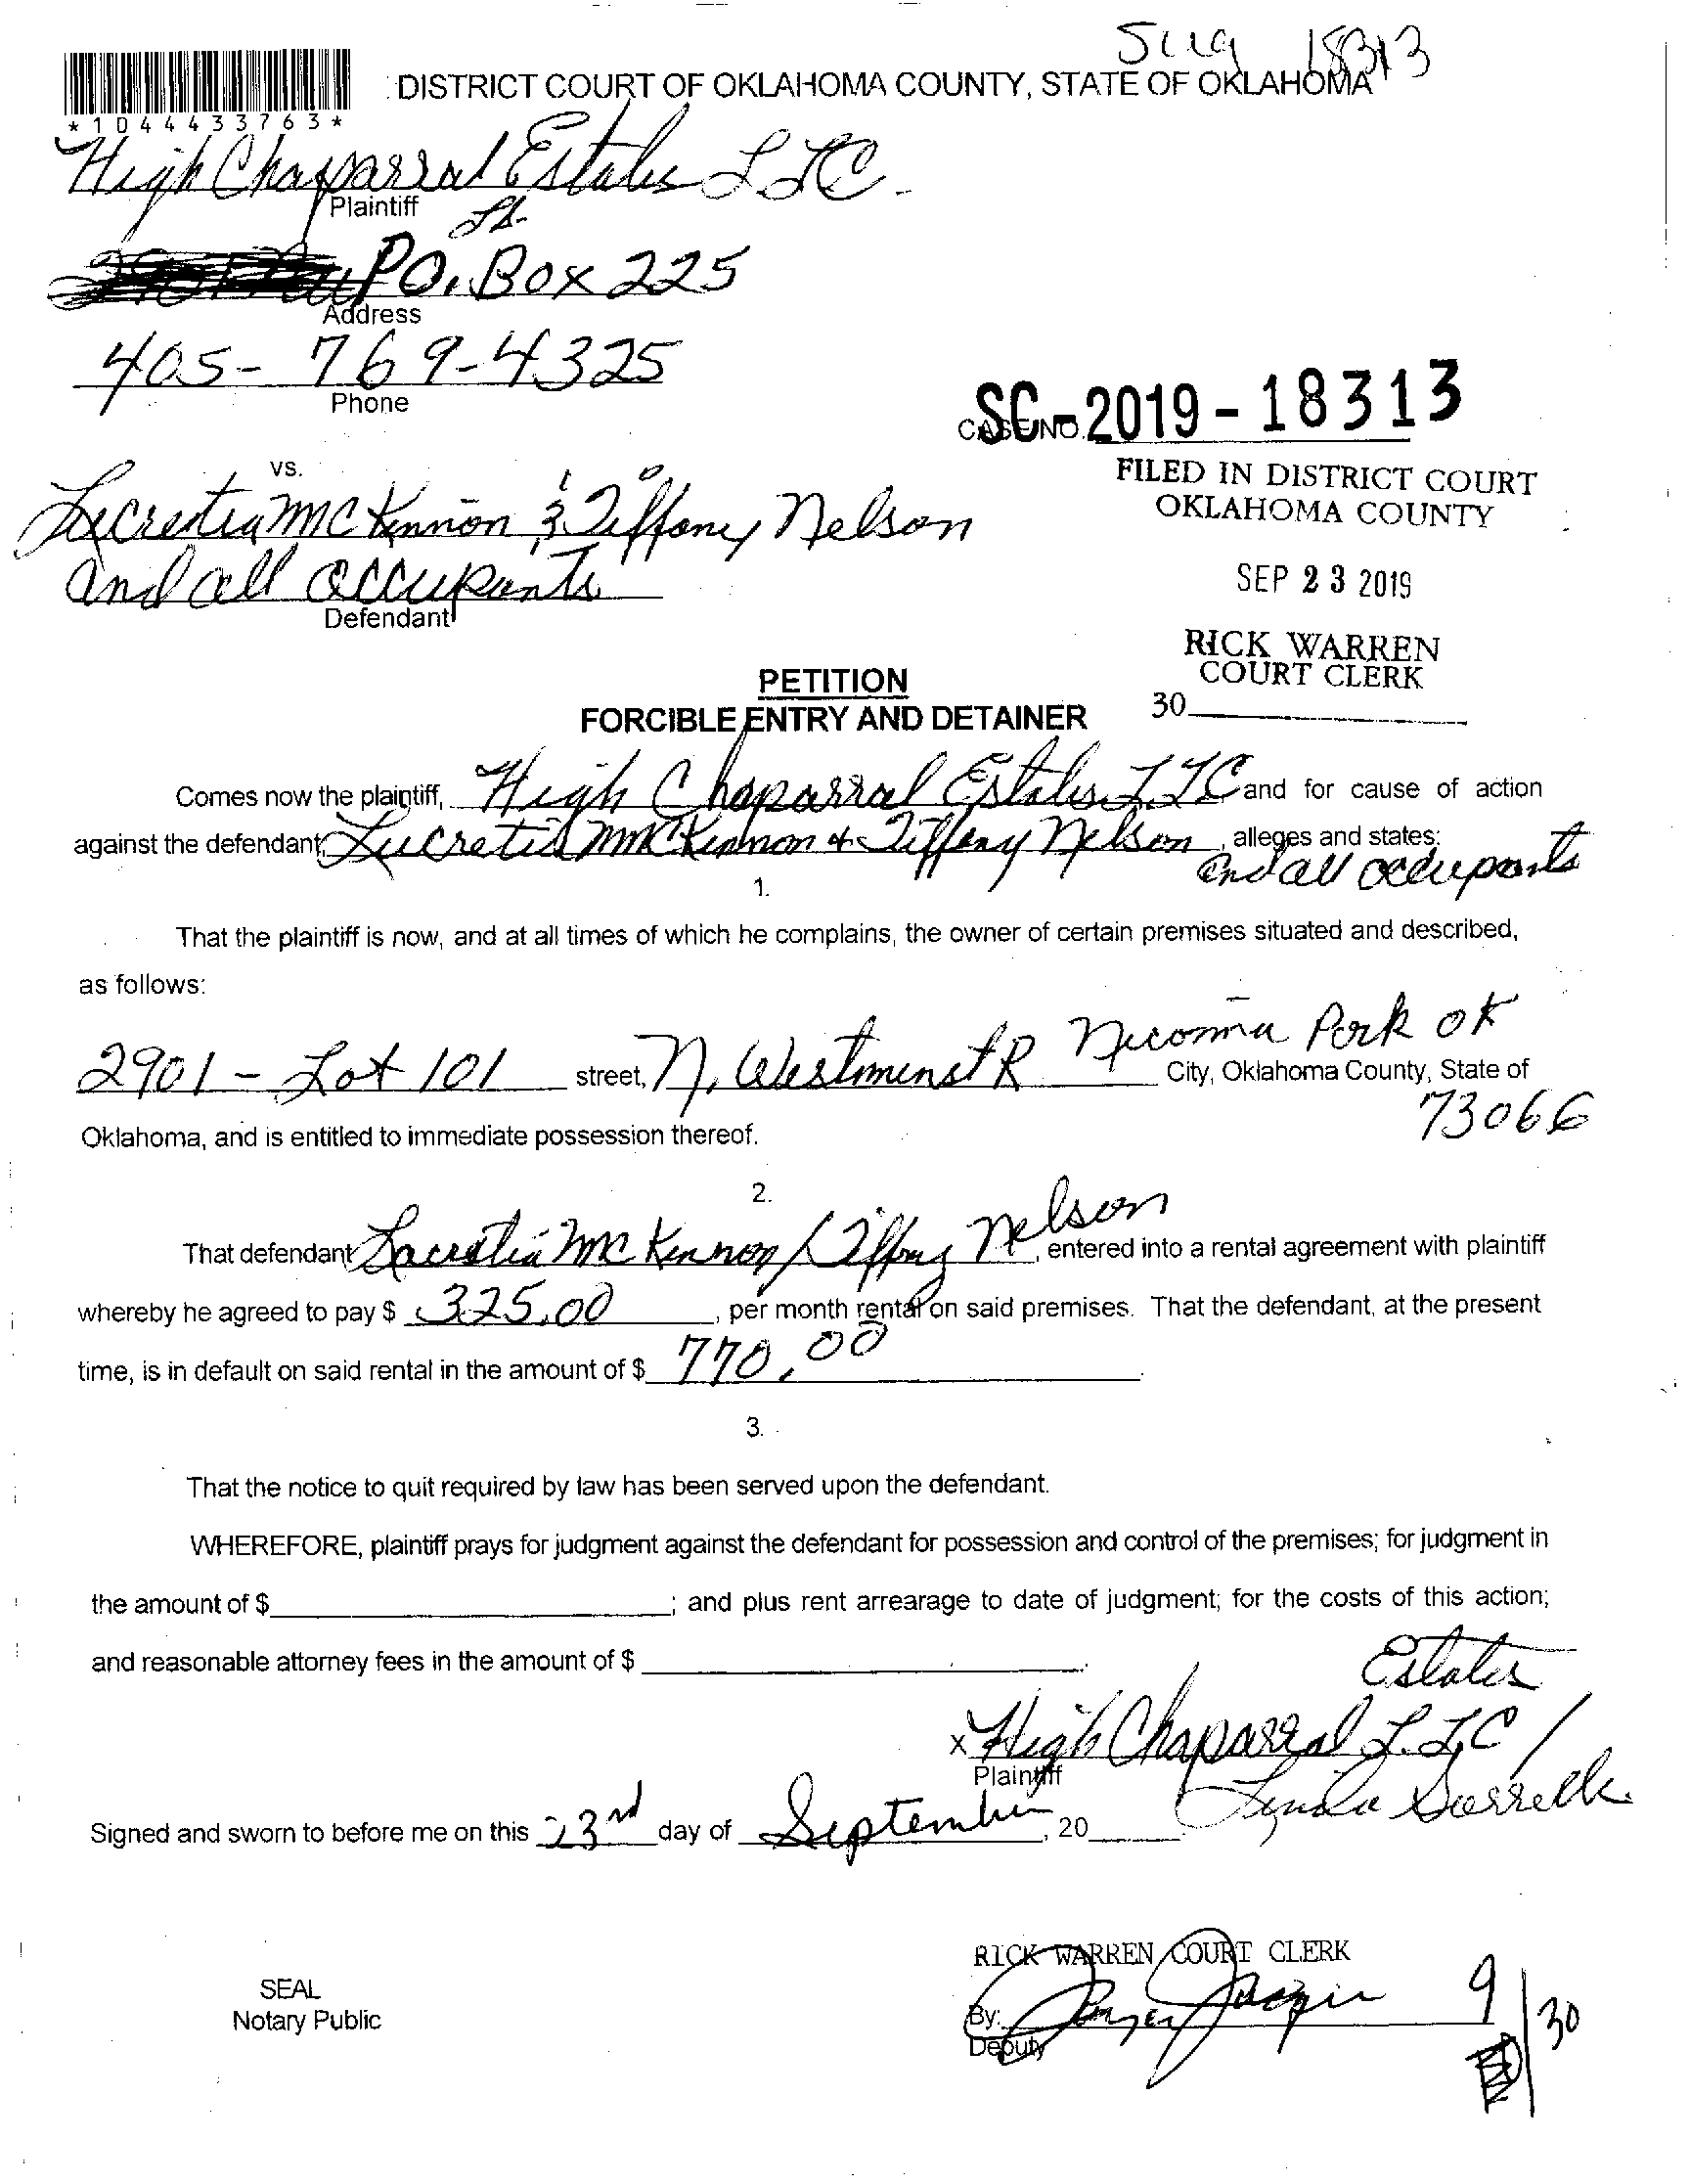 18313
DISTRICT COURT OF OKLAHOMA COUNTY, STATE OF OKLAHOMA
*1044433763*
High Chaparral Estates LLC.
Plaintiff
P.O. Box 225
Address
405-769-4325
Phone
CASE NO. SC-2019-18313
FILED IN DISTRICT COURT
OKLAHOMA COUNTY
vs.
Lucretia McKennon & Tiffany Nelson
and all occupants
Defendant
SEP 23 2019
RICK WARREN
COURT CLERK
30
PETITION
FORCIBLE ENTRY AND DETAINER
Comes now the plaintiff, High Chaparral Estates LLC and for cause of action
against the defendant, Lucretia McKennon & Tiffany Nelson, alleges and states:
and all occupants
1.
That the plaintiff is now, and at all times of which he complains, the owner of certain premises situated and described,
as follows:
2901 - Lot 101 street, N. WestminstR Nicoma Park OK City, Oklahoma County, State of
73066
Oklahoma, and is entitled to immediate possession thereof.
2.
That defendant Lucretia McKennon / Tiffany Nelson, entered into a rental agreement with plaintiff
whereby he agreed to pay $ 325.00, per month rental on said premises. That the defendant, at the present
time, is in default on said rental in the amount of $ 770.00
3.
That the notice to quit required by law has been served upon the defendant.
WHEREFORE, plaintiff prays for judgment against the defendant for possession and control of the premises; for judgment in
the amount of $ ; and plus rent arrearage to date of judgment; for the costs of this action;
and reasonable attorney fees in the amount of $
Estates
x High Chaparral L.L.C /
Plaintiff
Signed and sworn to before me on this 23rd day of September, 20
RICK WARREN COURT CLERK
SEAL
Notary Public
By:
Deputy
9/30